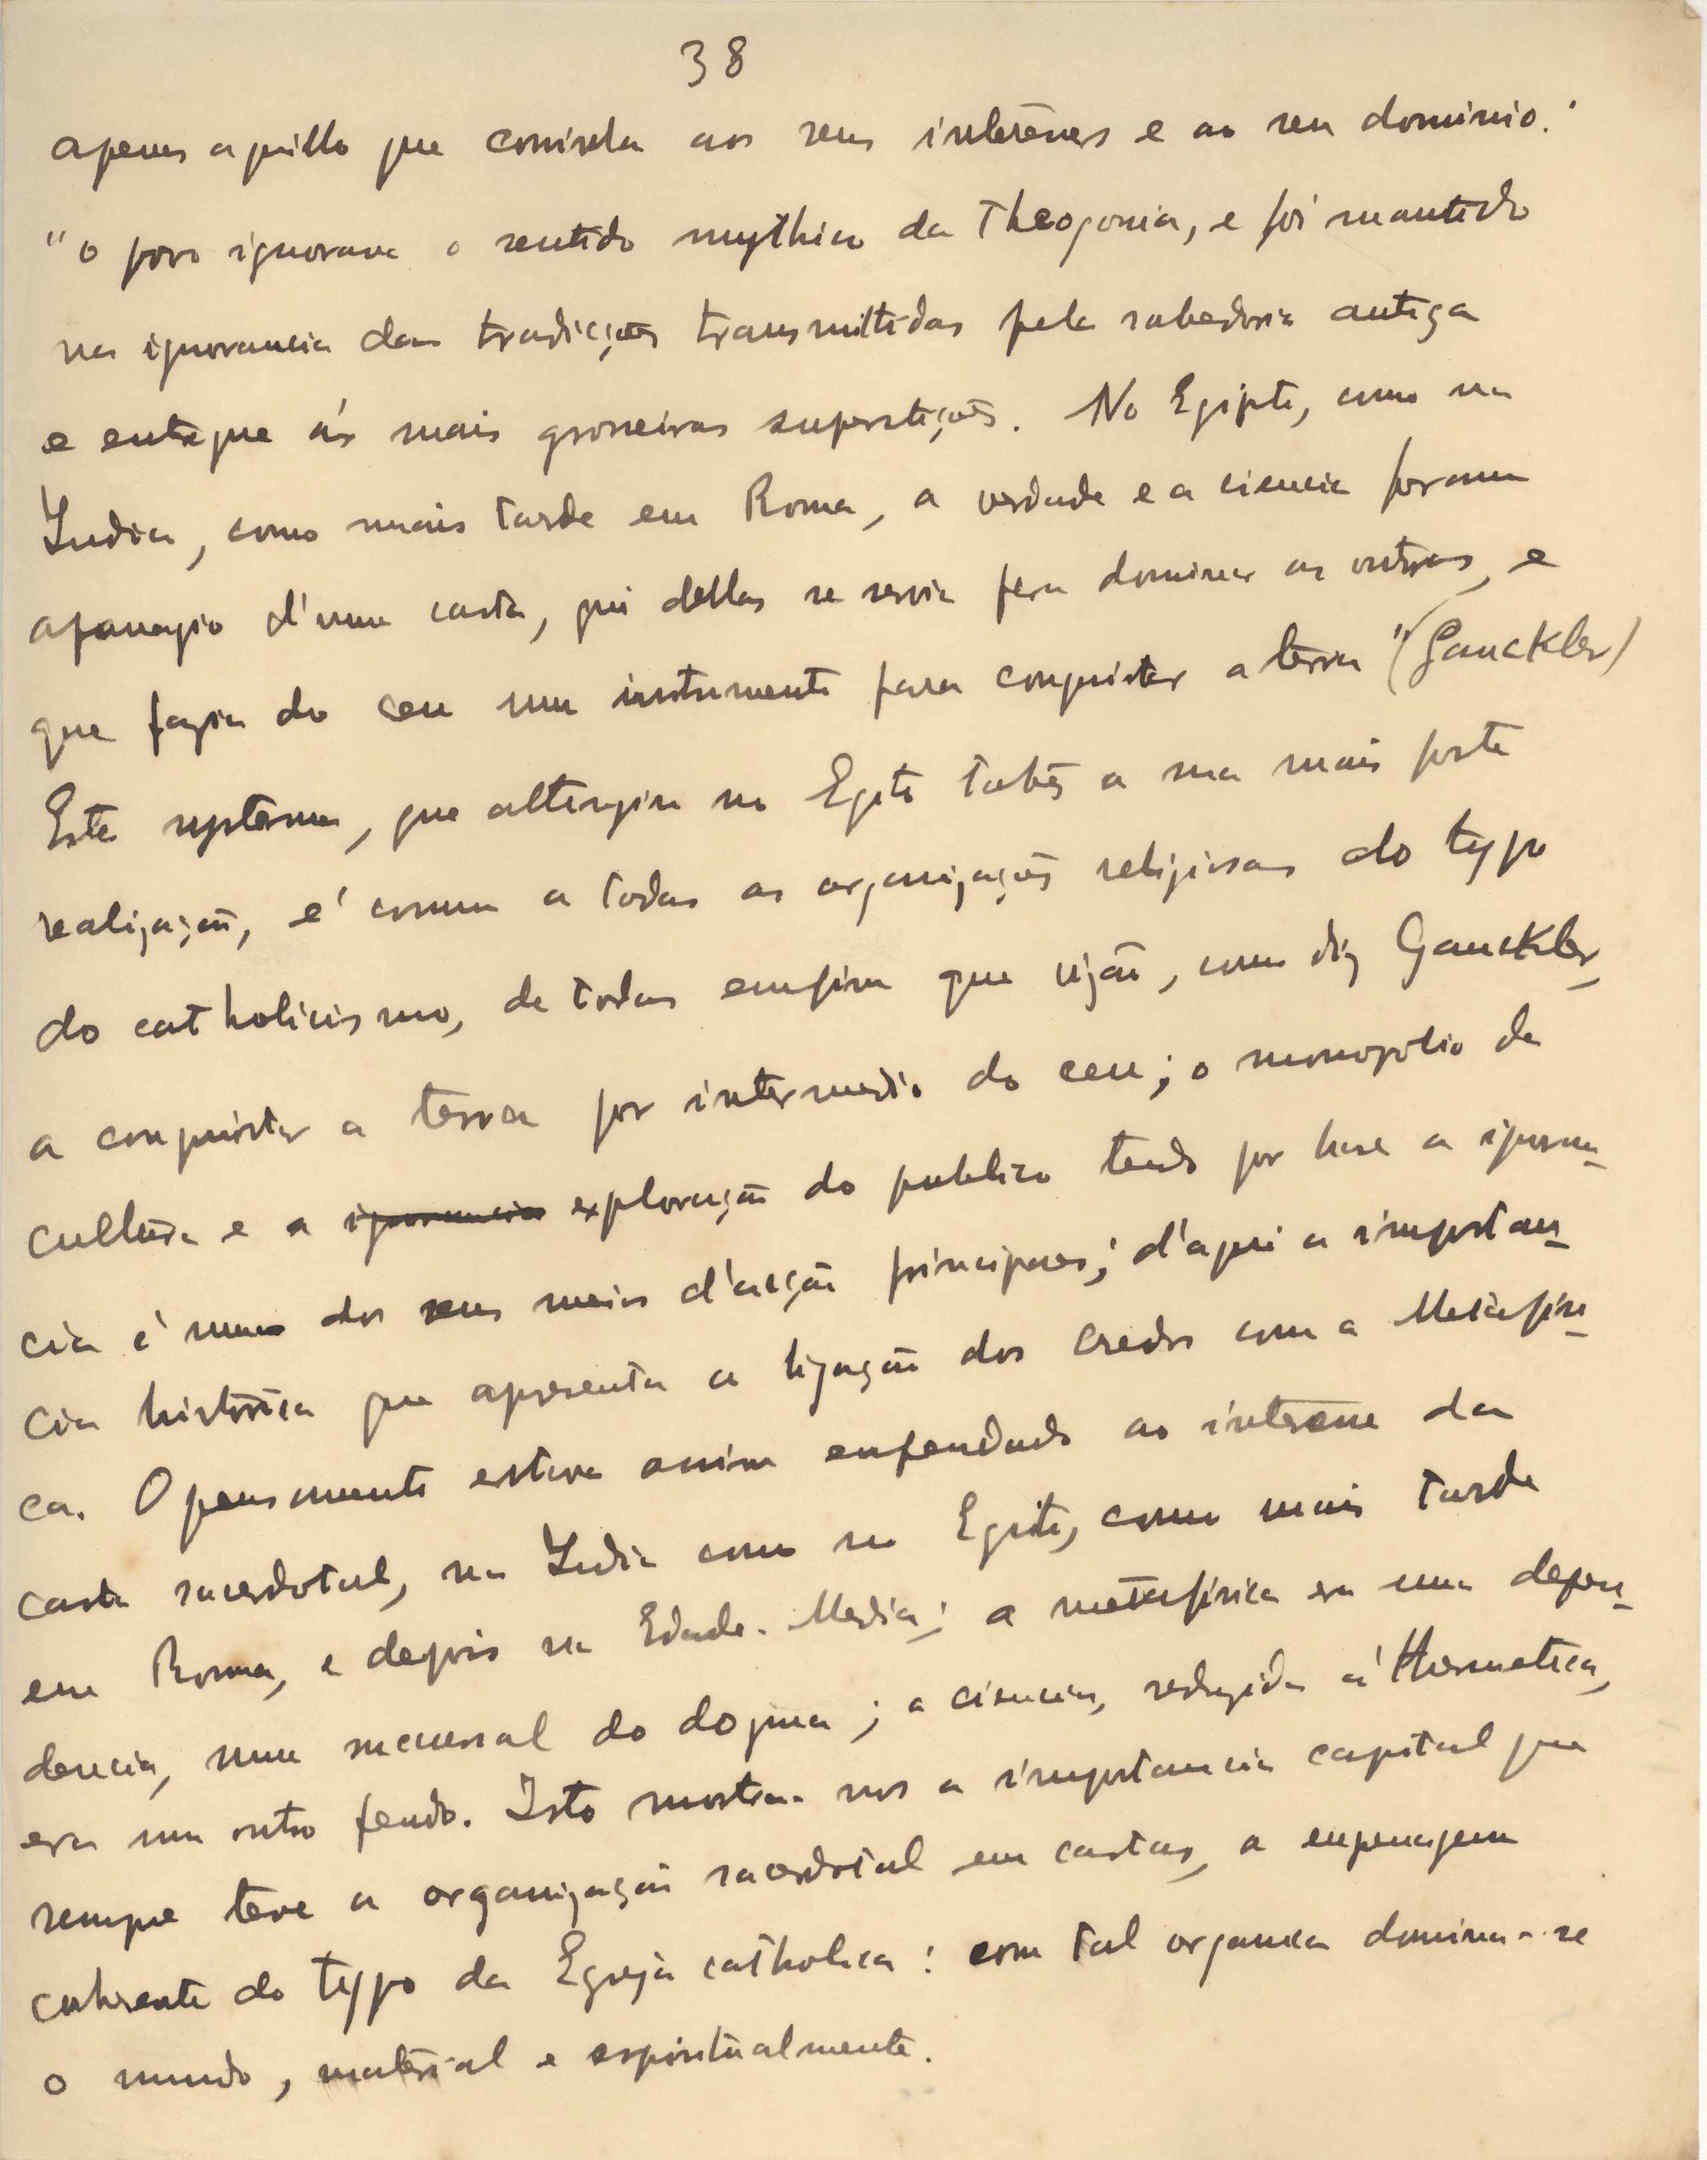 38
apenas aquillo que convinha aos seus interesses e ao seu dominio.
"O povo ignorava o sentido mythico da Theogonia, e foi mantido
na ignorancia das tradicções transmittidas pela sabedoria antiga
e entregue ás mais grosseiras superstições. No Egipto, como na
India, como mais tarde em Roma, a verdade e a ciencia foram
apanagio d'uma casta, que dellas se servia para dominar as outras, e
que fazia do ceu um instrumento para conquistar a terra" (Gauckler)
Este systema, que attingiu no Egito talvês a sua mais forte
realização, é comum a todas as organizações religiosas do typo
do catholicismo, de todas emfim que visão, como diz Gauckler,
a conquistar a terra por intermedio do ceu; o monopolio da
cultura e a ignorancia exploração do publico tendo por base a ignoran-
cia é um dos seus meios d'acção principaes; d'aqui a importan-
cia historica que apresenta a ligação dos credos com a Metafisi-
ca. O pensamento estava assim enfeudado ao interesse da
casta sacerdotal, na India como no Egito, como mais tarde
em Roma, e depois na Edade-Media; a metafisica era uma depen-
dencia, uma sucursal do dogma; a ciencia, reduzida á Hermetica,
era um outro feudo. Isto mostra-nos a importancia capital que
sempre teve a organização sacerdotal em castas, a engrenagem
coherente do typo da Egreja catholica: com tal organica domina-se
o mundo, material e espiritualmente.